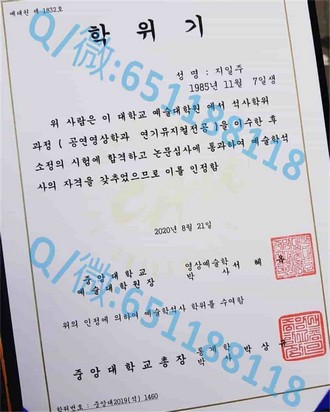 예대원 제 1832호
학 위 기
성 명 : 지일주
1985년 11월 7일생
위 사람은 이 대학교 예술대학원에서 석사학위
과정 ( 공연영상학과 연기뮤지컬전공 )을 이수한 후
소정의 시험에 합격하고 논문심사에 통과하여 예술학석
사의 자격을 갖추었으므로 이를 인정함
2020년 8월 21일
중 앙 대 학 교 영상예술학
예 술 대 학 원 장 박 사 서 혜
위의 인정에 의하여 예술학석사 학위를 수여함
중 앙 대 학 교 총 장 통 계 학
박 사 박 상
학위번호 : 중앙대2019(석) 1460
Q/微:651188118
Q/微:651188118